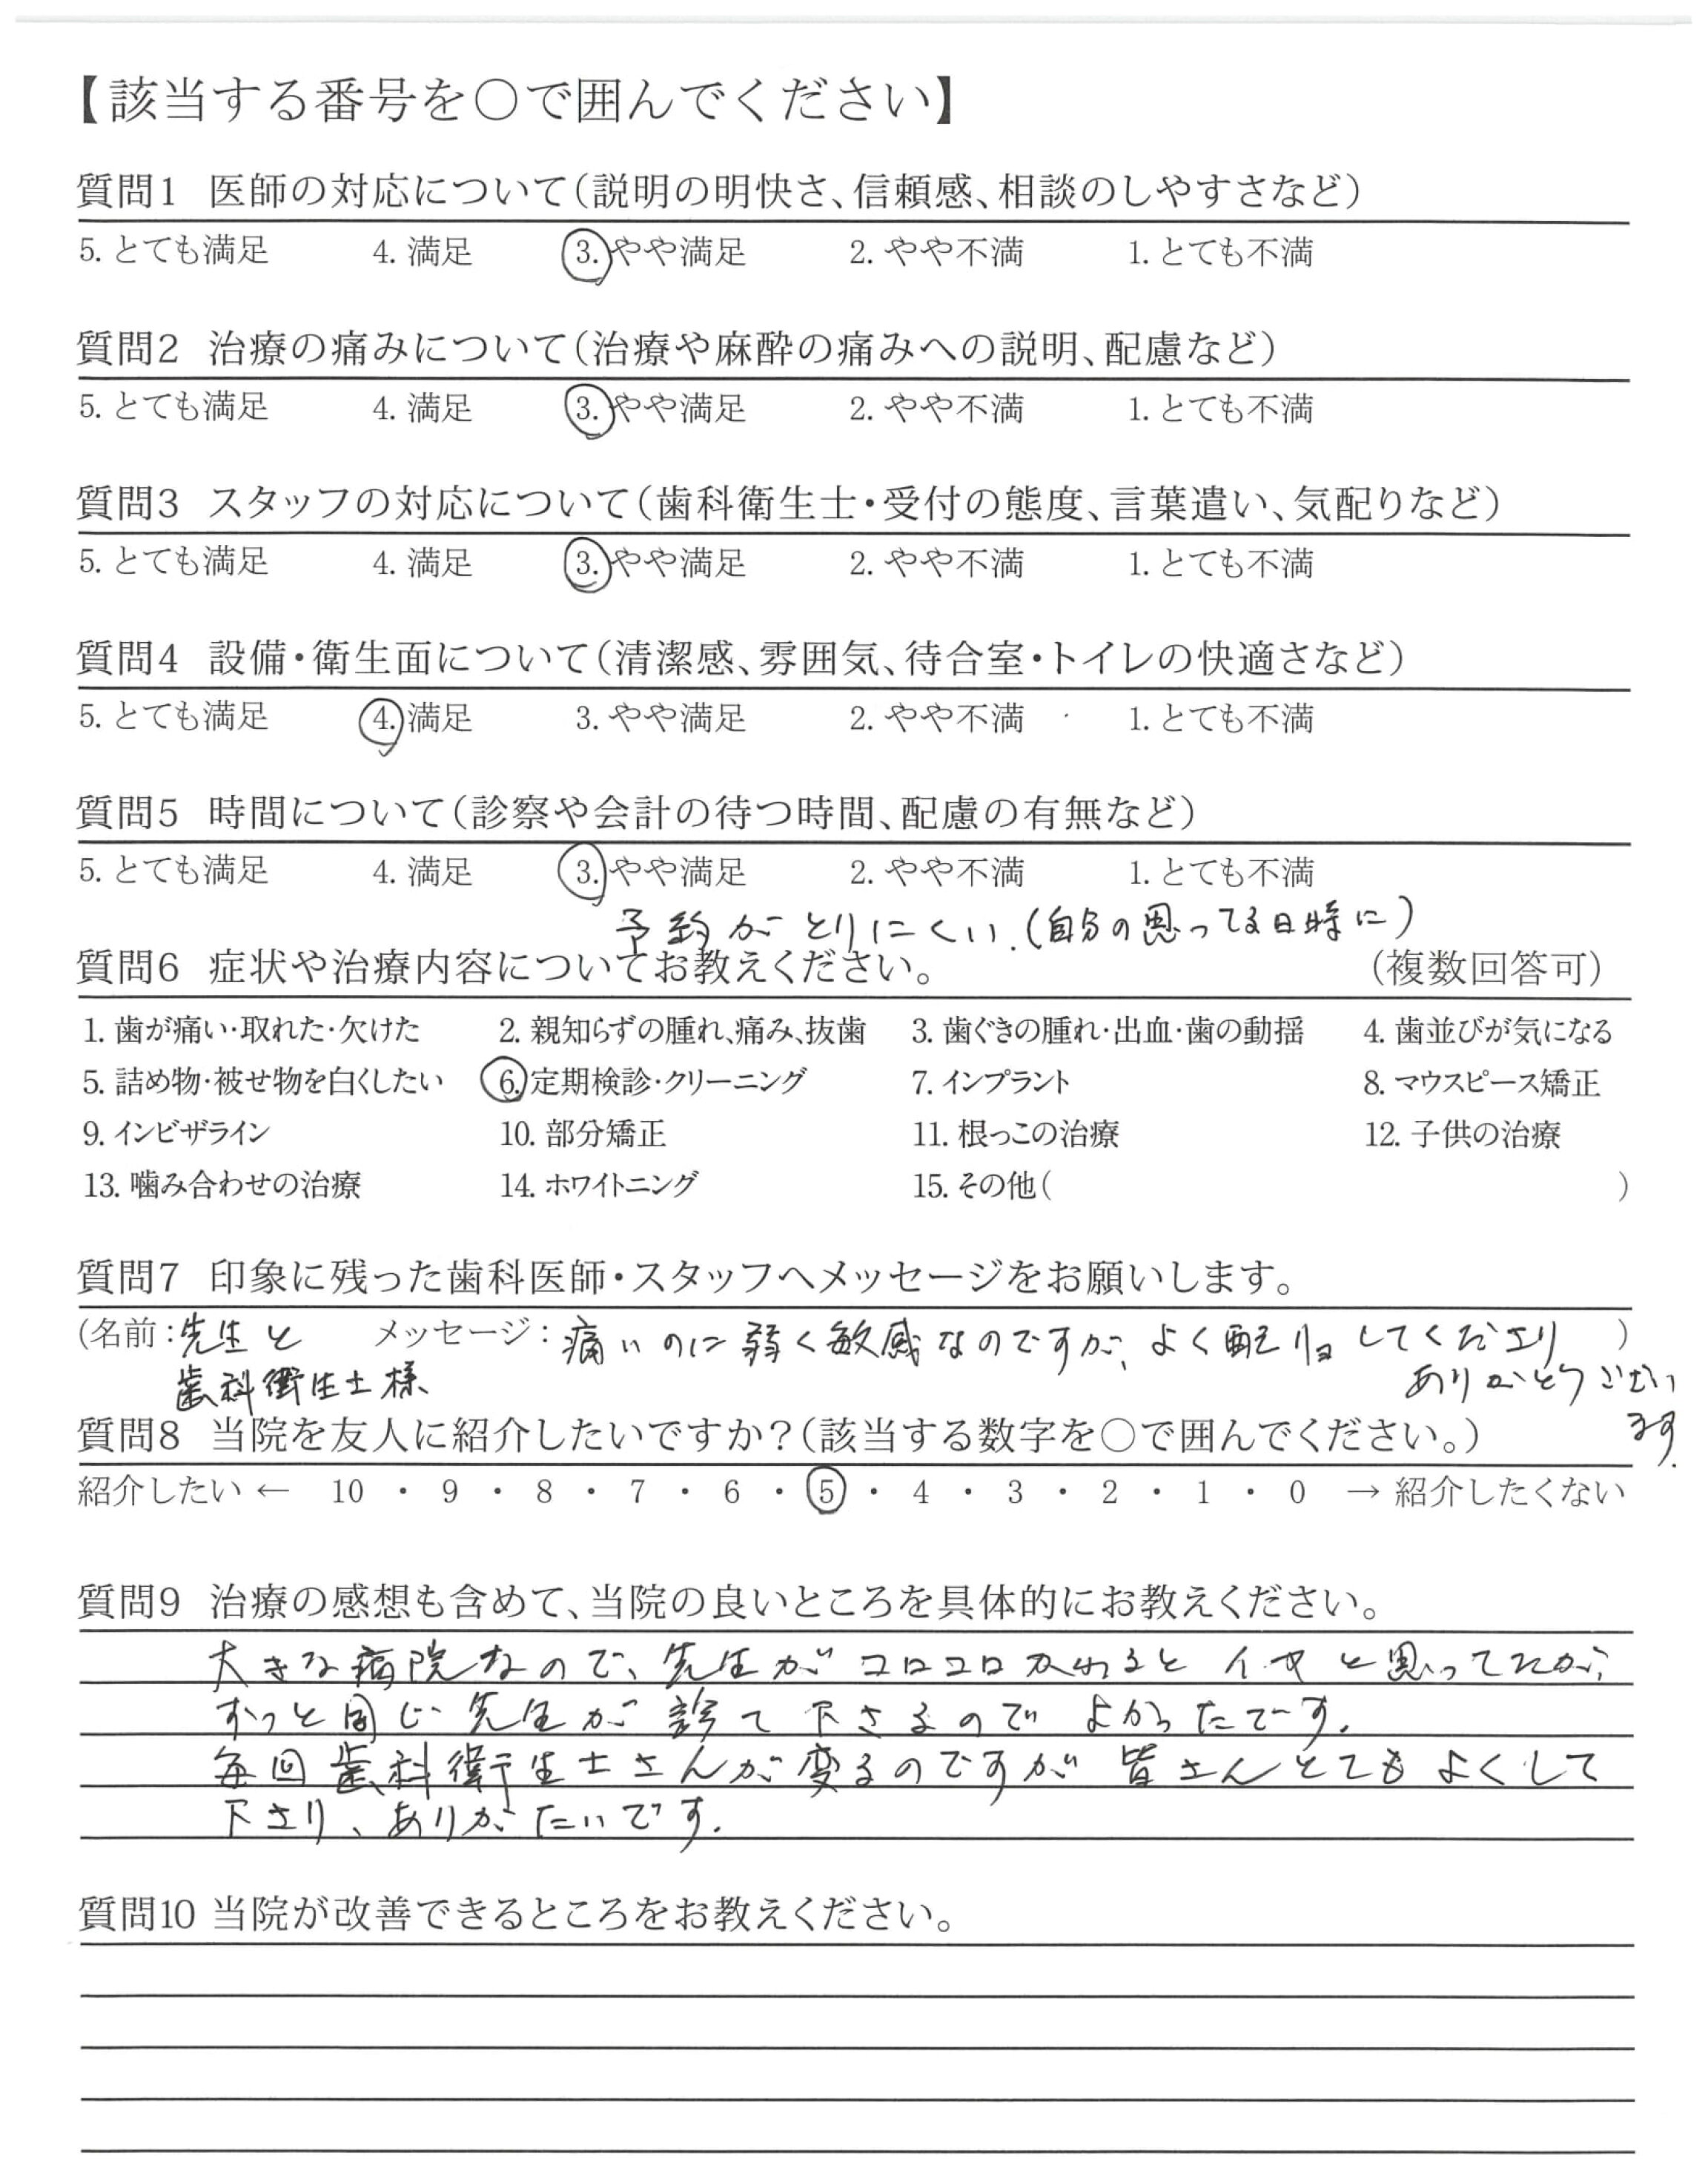 【該当する番号を○で囲んでください】
質問1 医師の対応について(説明の明快さ、信頼感、相談のしやすさなど)
5. とても満足 4. 満足 3. やや満足 2. やや不満 1. とても不満
質問2 治療の痛みについて(治療や麻酔の痛みへの説明、配慮など)
5. とても満足 4. 満足 3. やや満足 2. やや不満 1. とても不満
質問3 スタッフの対応について(歯科衛生士・受付の態度、言葉遣い、気配りなど)
5. とても満足 4. 満足 3. やや満足 2. やや不満 1. とても不満
質問4 設備・衛生面について(清潔感、雰囲気、待合室・トイレの快適さなど)
5. とても満足 4. 満足 3. やや満足 2. やや不満 1. とても不満
質問5 時間について(診察や会計の待つ時間、配慮の有無など)
5. とても満足 4. 満足 3. やや満足 2. やや不満 1. とても不満
予約がとりにくい.(自分の思ってる日時に)
質問6 症状や治療内容についてお教えください。 (複数回答可)
1. 歯が痛い・取れた・欠けた 2. 親知らずの腫れ、痛み、抜歯 3. 歯ぐきの腫れ・出血・歯の動揺 4. 歯並びが気になる
5. 詰め物・被せ物を白くしたい 6. 定期検診・クリーニング 7. インプラント 8. マウスピース矯正
9. インビザライン 10. 部分矯正 11. 根っこの治療 12. 子供の治療
13. 噛み合わせの治療 14. ホワイトニング 15. その他( )
質問7 印象に残った歯科医師・スタッフへメッセージをお願いします。
(名前:先生と メッセージ:痛いのに弱く敏感なのですが、よく配慮してくださり )
歯科衛生士様 ありがとうござい
ます.
質問8 当院を友人に紹介したいですか?(該当する数字を○で囲んでください。)
紹介したい ← 10 ・ 9 ・ 8 ・ 7 ・ 6 ・ 5 ・ 4 ・ 3 ・ 2 ・ 1 ・ 0 → 紹介したくない
質問9 治療の感想も含めて、当院の良いところを具体的にお教えください。
大きな病院なので、先生がコロコロかわるとイヤと思ってたが、
ずっと同じ先生が診て下さるのでよかったです.
毎回歯科衛生士さんが変るのですが皆さんとてもよくして
下さり、ありがたいです.
質問10 当院が改善できるところをお教えください。